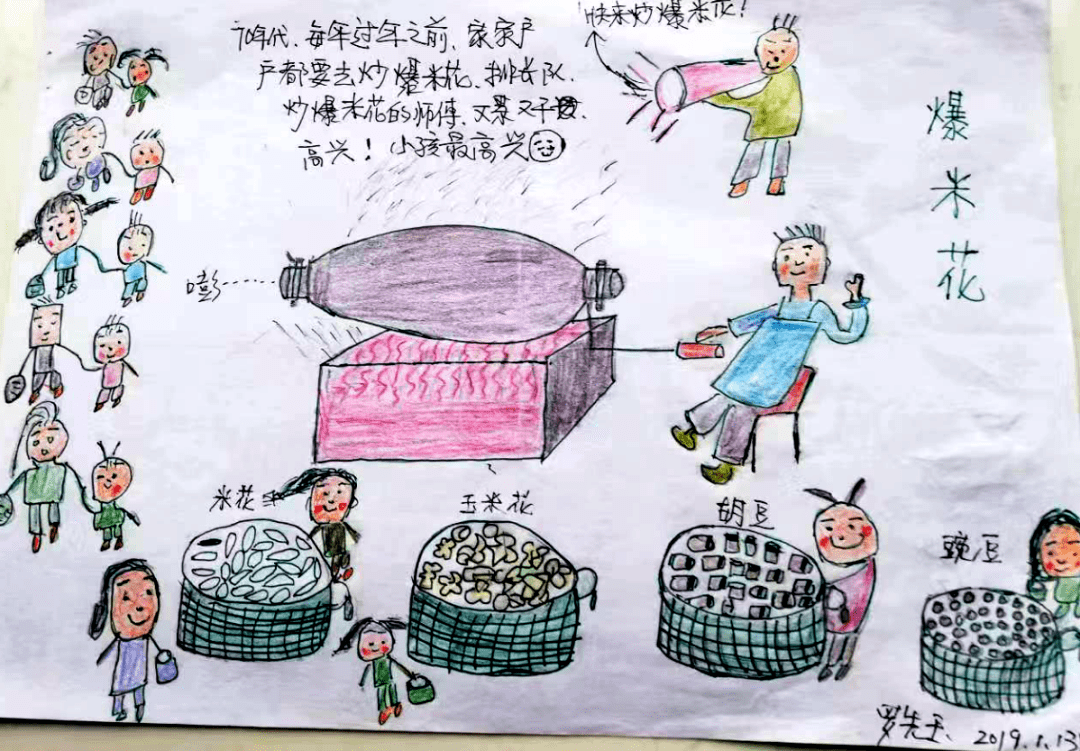 70年代、每年过年之前、家家户
户都要去炒爆米花、排长队、
炒爆米花的师傅、又
高兴！小孩最高兴
快来炒爆米花！
爆米花
嘭
米花
玉米花
胡豆
豌豆
罗先玉、2019.1.13